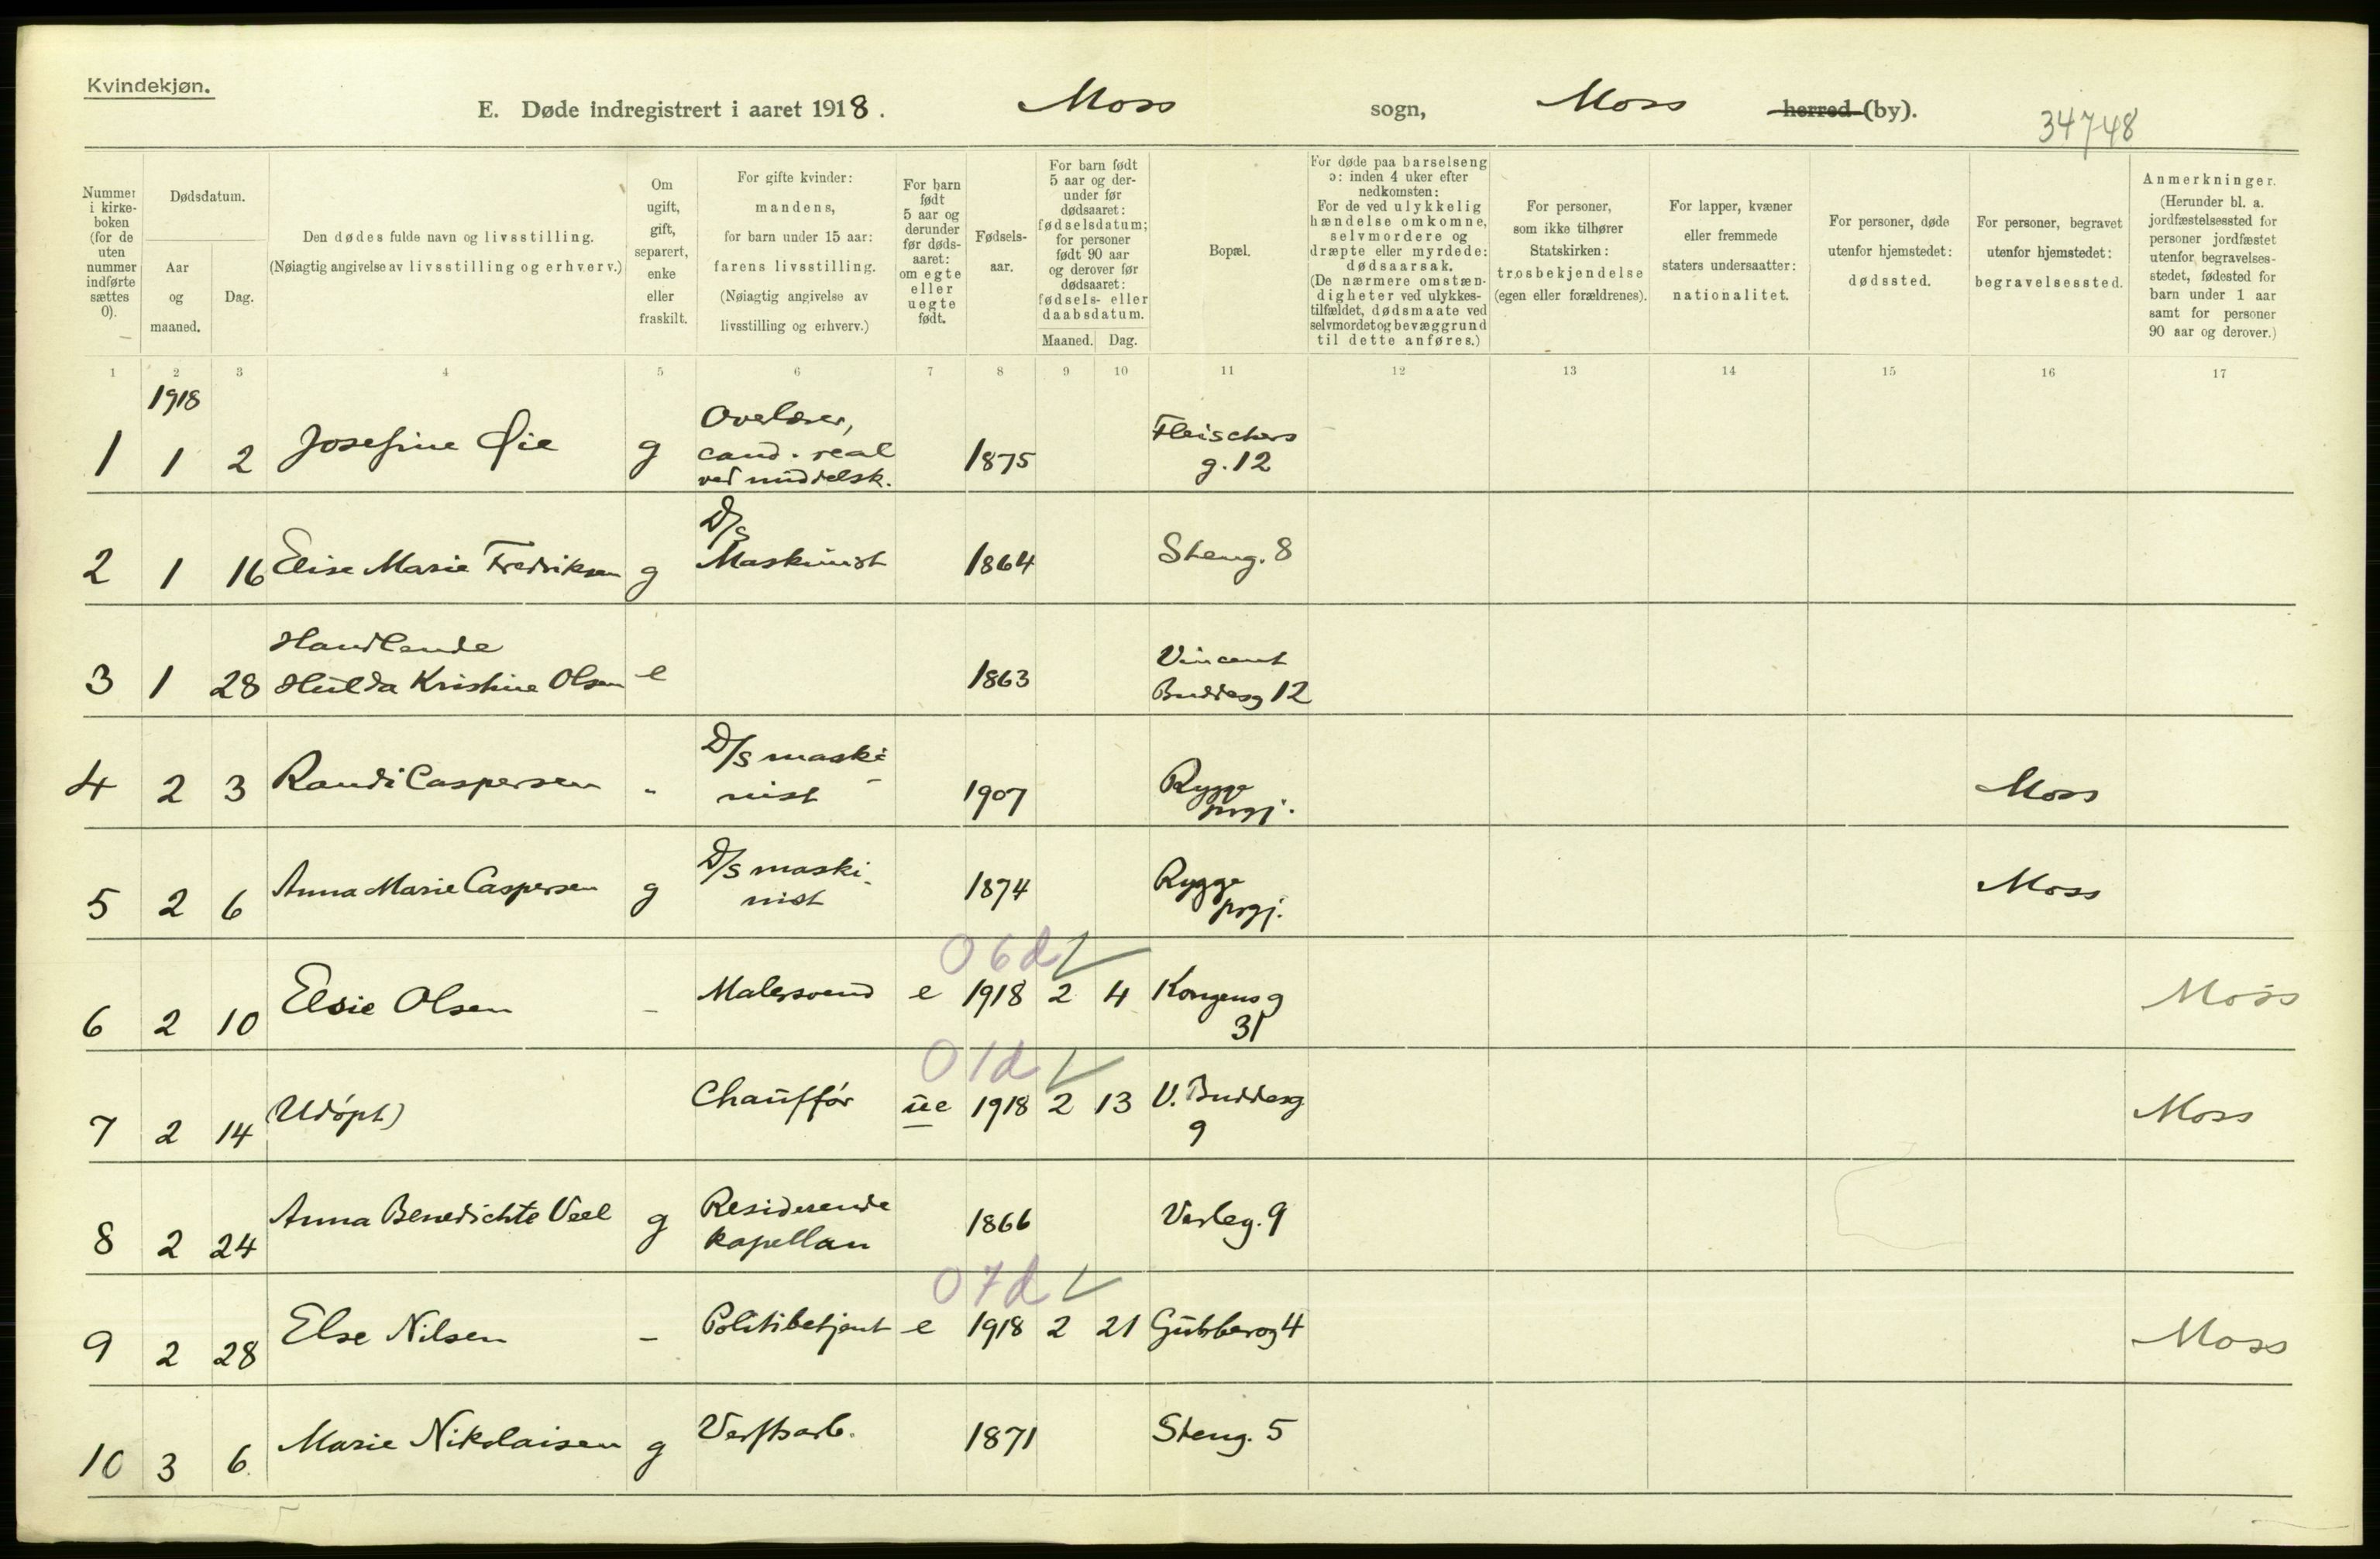 Kvindekjøn.
E. Døde indregistrert i aaret 1918. Moss sogn, Moss herred (by).
34748
Nummer i kirkeboken (for de uten nummer indførte sættes 0).
Dødsdatum.
Aar og maaned.
Dag.
Den dødes fulde navn og livsstilling.
(Nøiagtig angivelse av livsstilling og erhverv.)
Om ugift, gift, separert, enke eller fraskilt.
For gifte kvinder: mandens, for barn under 15 aar: farens livsstilling.
(Nøiagtig angivelse av livsstilling og erhverv.)
For barn født 5 aar og derunder før dødsaaret: om egte eller uegte født.
Fødselsaar.
For barn født 5 aar og derunder før dødsaaret: fødselsdatum; for personer født 90 aar og derover før dødsaaret: fødsels- eller daabsdatum.
Maaned. Dag.
Bopæl.
For døde paa barselseng ɔ: inden 4 uker efter nedkomsten:
For de ved ulykkelig hændelse omkomne, selvmordere og dræpte eller myrdede: dødsaarsak.
(De nærmere omstændigheter ved ulykkestilfældet, dødsmaate ved selvmordet og bevæggrund til dette anføres.)
For personer, som ikke tilhører Statskirken: trosbekjendelse (egen eller forældrenes).
For lapper, kvæner eller fremmede staters undersaatter: nationalitet.
For personer, døde utenfor hjemstedet: dødssted.
For personer, begravet utenfor hjemstedet: begravelsessted.
Anmerkninger.
(Herunder bl. a. jordfæstelsessted for personer jordfæstet utenfor begravelsesstedet, fødested for barn under 1 aar samt for personer 90 aar og derover.)
1 2 3 4 5 6 7 8 9 10 11 12 13 14 15 16 17
1918
1 1 2 Josefine Øie g Overlærer, cand. real ved middelsk. 1875 Fleischers g. 12
2 1 16 Elise Marie Fredriksen g D/S Maskinist 1864 Steng. 8
3 1 28 Handlende Hulda Kristine Olsen e 1863 Vincent Buddesg 12
4 2 3 Randi Caspersen - D/S maskinist 1907 Rygge prgj. Moss
5 2 6 Anna Marie Caspersen g D/S maskinist 1874 Rygge prgj. Moss
06d
6 2 10 Elsie Olsen - Malersvend e 1918 2 4 Kongensg 31 Moss
01d
7 2 14 (Udøpt) Chauffør ue 1918 2 13 V. Buddesg 9 Moss
8 2 24 Anna Benedichte Veel g Residerende kapellan 1866 Verleg. 9
07d
9 2 28 Else Nilsen - Politibetjent e 1918 2 21 Gubberog 4 Moss
10 3 6. Marie Nikolaisen g Verftsarb. 1871 Steng. 5